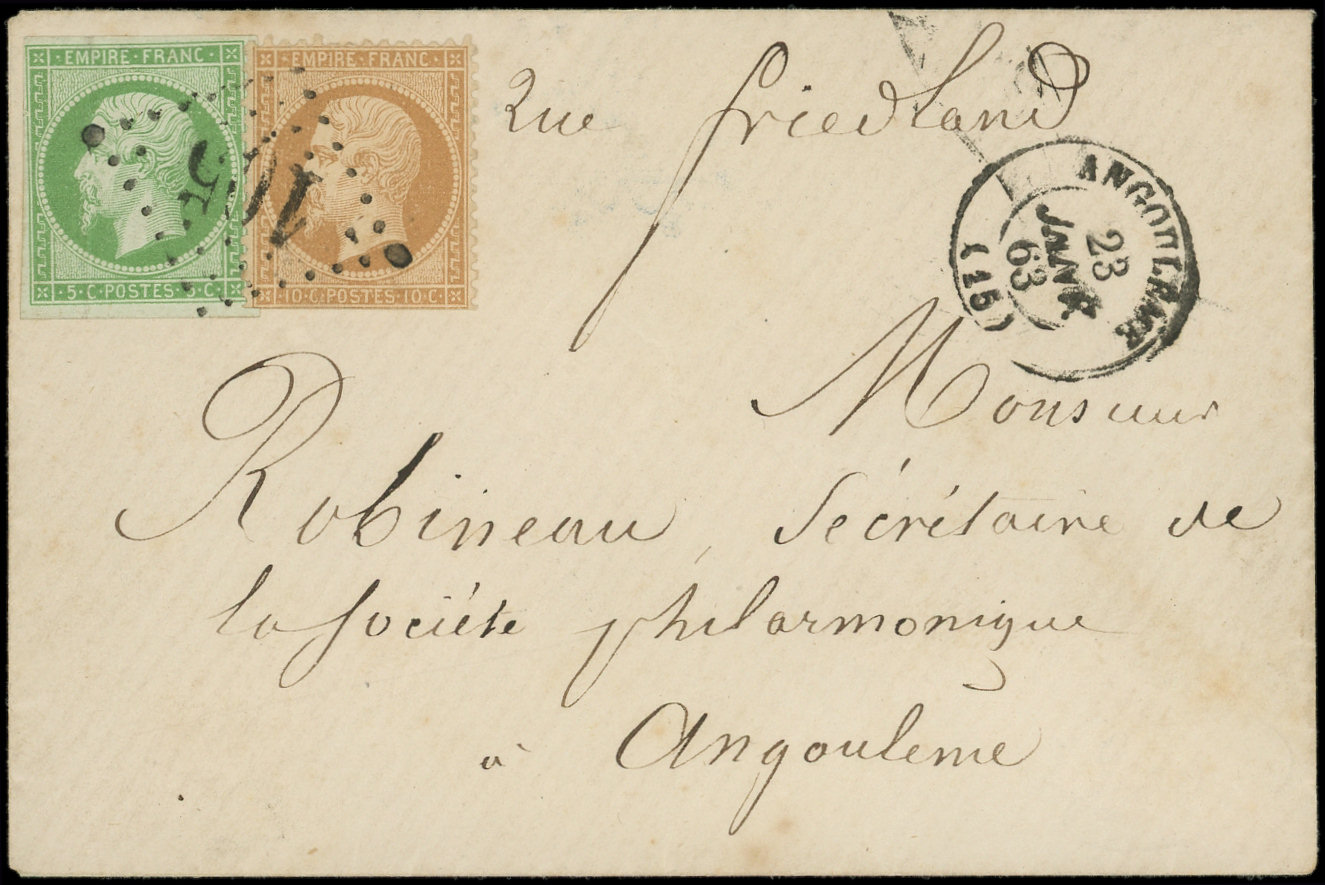 EMPIRE·FRANC·
5·C·POSTES·5·C·
EMPIRE FRANC·
10·C·POSTES·10·C·
105
Rue friedland
ANGOULEME
23
JANV.
63
(15)
Monsieur
Robineau, Sécrétaire de
la Société philarmonique
à Angoulême